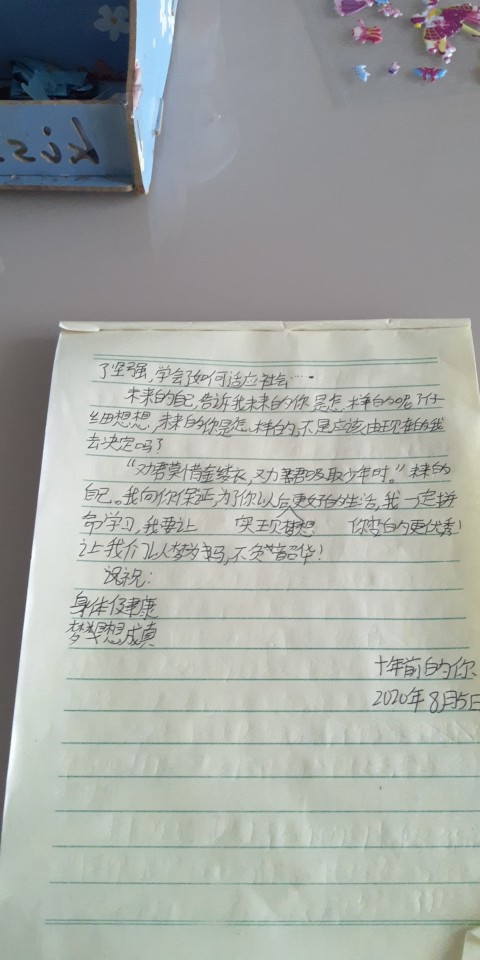 了坚强,学会了如何适应社会……
未来的自己,告诉我未来的你是怎样的呢?仔
细想想,未来的你是怎样的,不是应该由现在的我
去决定吗?
“劝君莫惜金缕衣,劝君惜取少年时。”未来的
自己。我向你保证,为了你以后更好的生活,我一定拼
命学习,我要让 实现梦想 你变的更优秀!
让我们以梦为马,不负韶华!
祝:
身体健康
梦想成真
十年前的你
2020年8月5日